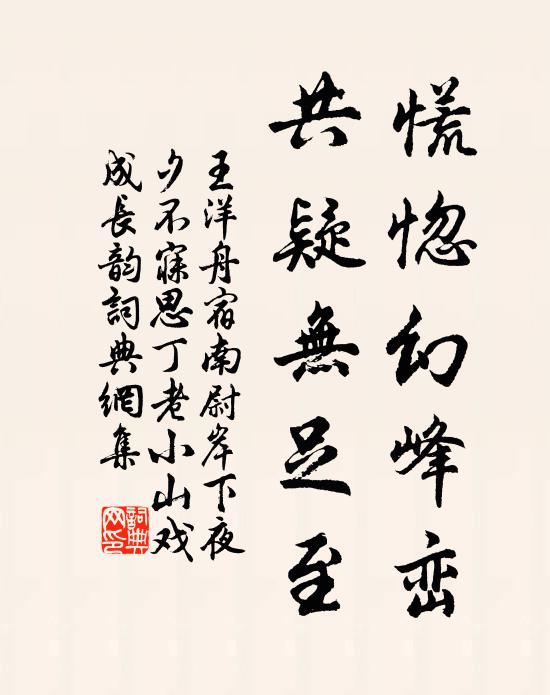 慌惚幻峰峦
共疑無足至
王洋舟宿南尉岸下夜
夕不寐思丁老小山戏
成長韵詞典網集
詞典网印